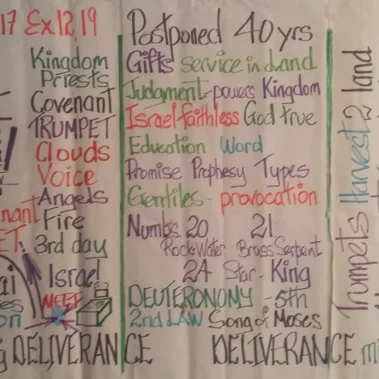 17 Ex.12,19
Kingdom
Priests
Covenant
TRUMPET
Clouds
Voice
Angels
Fire
3rd day
Israel
MEET
DELIVERANCE
Postponed 40 yrs
Gifts service in Land
Judgment-powers Kingdom
Israel-faithless God true
Education Word
Promise Prophesy Types
Gentiles - provocation
Numbs 20 21
Rock-Water Brass Serpent
24 Star - King
DEUTERONOMY - 5th
2nd LAW Song of Moses
DELIVERANCE
Trumpets Harvest 2 land